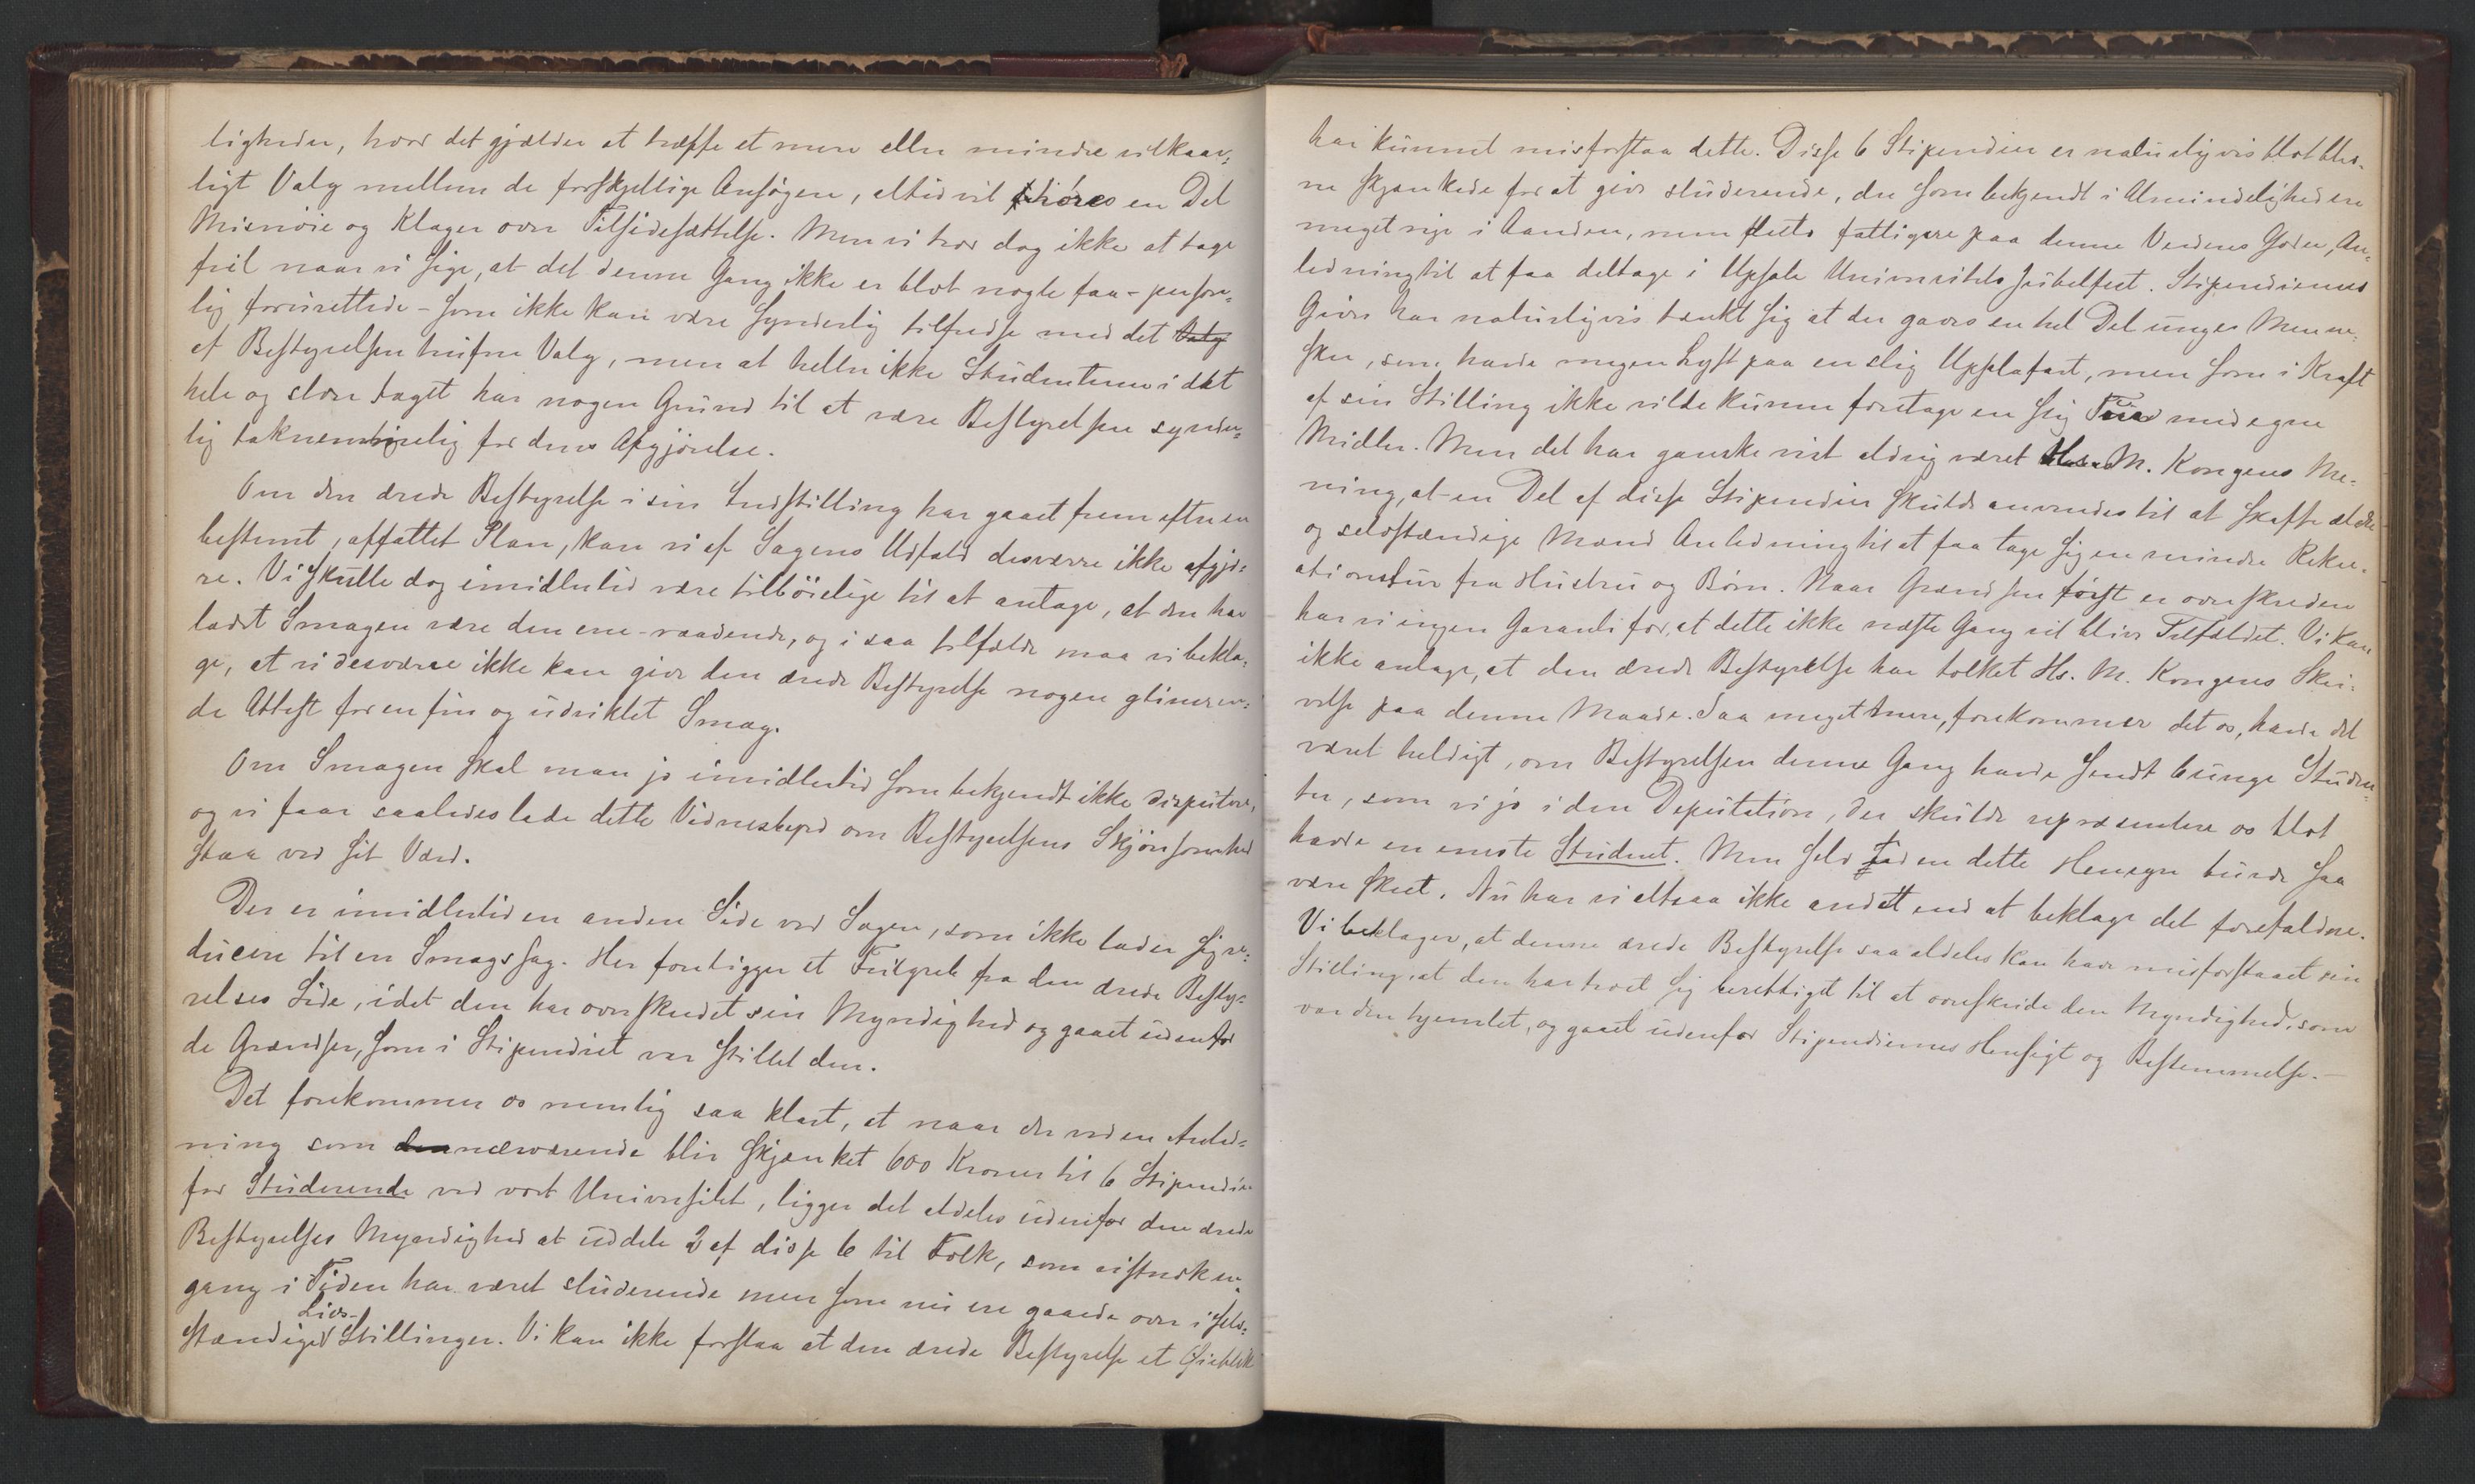 ligheder, hvor det gjælder at træffe et mere eller mindre vilkaar-
ligt Valg mellem de forskjellige Ansøgere, altid vil høres en Del
Misnöie og Klager over Tilsidesættelse. Men vi tror dog ikke at tage
feil naar vi sige, at det denne Gang ikke er blot nogle faa - person-
lig forurettede - som ikke kan være synderlig tilfredse med det Valg
af Bestyrelsen trufne Valg, men at heller ikke Studenterne i det
hele og store taget har nogen Grund til at være Bestyrelsen synder-
lig taknemmelig for dens Afgjörelse.
Om den ærede Bestyrelse i sin Indstilling har gaaet frem efter en
bestemt, affattet Plan, kan vi af Sagens Udfald desværre ikke afgjö-
re. Vi skulle dog imidlertid være tilböielige til at antage, at den har
ladet Smagen være den ene-raadende, og i saa tilfælde maa vi bekla-
ge, at vi desværre ikke kan give den ærede Bestyrelse nogen glimren-
de Attest for en fin og udviklet Smag.
Om Smagen skal man jo imidlertid som bekjendt ikke disputere,
og vi faar saaledes lade dette Vidnesbyrd om Bestyrelsens Skjönsomhed
staa ved sit Værd.
Der er imidlertid en anden Side ved Sagen, som ikke lader sig re-
ducere til en Smagssag. Her foreligger et Feilgreb fra den ærede Besty-
relses Side, idet den har overskredet sin Myndighed og gaaet udenfor
de Grændser, som i Stipendiet var stillet den.
Det forekommer os nemlig saa klart, at naar der ved en Anled-
ning som den nærværende blir skjænket 600 Kroner til 6 Stipendier
for Studerende ved vort Universitet, ligger det aldeles udenfor den ærede
Bestyrelses Myndighed at uddele 2 af disse 6 til Folk, som vistnok en-
gang i Tiden har været studerende men som nu ere gaaede over i selv-
stændige Livs- Stillinger. Vi kan ikke forstaa at den ærede Bestyrelse et Öieblik
har kunnet misforstaa dette. Disse 6 Stipendier er naturligvis blot ble-
ne skjænkede for at give studerende, der som bekjendt i Almindelighed ere
meget rige i Aanden, men flests fattigere paa denne Verdens Goder, An-
ledning til at faa deltage i Upsala Universitets Jubelfest. Stipendiernes
Giver har naturligvis tænkt sig at der gaves en hel Del unge Menne-
sker, som havde megen Lyst paa en slig Upsalafart, men som i Kraft
af sin Stilling ikke vilde kunne foretage en slig Tur med egne
Midler. Men det har ganske vist aldrig været Hs. M. Kongens Me-
ning, at en Del af disse Stipendier skulde anvendes til at skaffe ældre
og selvstændige Mænd Anledning til at faa tage sig en mindre Rekre-
ationstur fra Hustru og Börn. Naar Grændsen først er overskreden
har vi ingen Garanti for, at dette ikke næste Gang vil blive Tilfældet. Vi kan
ikke antage, at den ærede Bestyrelse har tolket Hs. M. Kongens Skri-
velse paa denne Maade. Saa meget mere, forekommer det os, havde det
været heldigt, om Bestyrelsen denne Gang havde sendt 6 unge Studen-
ter, som vi jo i den Deputation, der skulde repræsentere os blot
havde en eneste Student. Men selv uden dette Hensyn burde saa
være skeet. Nu har vi altsaa ikke andet end at beklage det forefaldne.
Vi beklager, at denne ærede Bestyrelse saa aldeles kan have misforstaaet sin
Stilling, at den har troet sig berettiget til at overskride den Myndighed, som
var den hjemlet, og gaaet udenfor Stipendiernes Hensigt og Bestemmelse. -